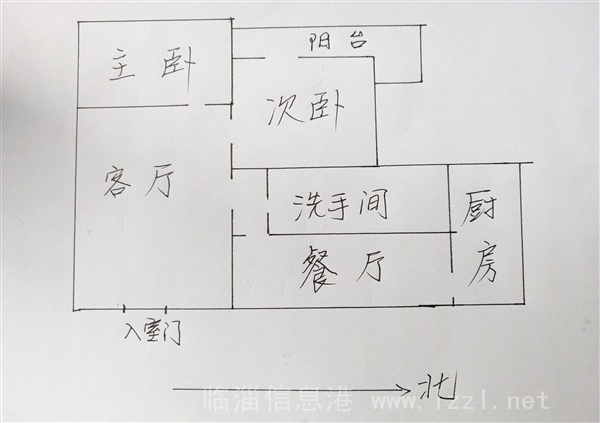 阳台
主卧
次卧
客厅
洗手间
厨房
餐厅
入室门
北
临淄信息港 www.lzzl.net